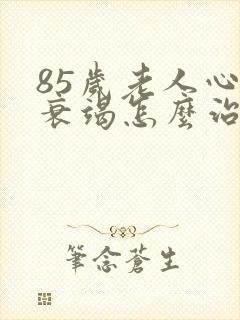 85歲老人心
衰竭怎麼治
筆念蒼生